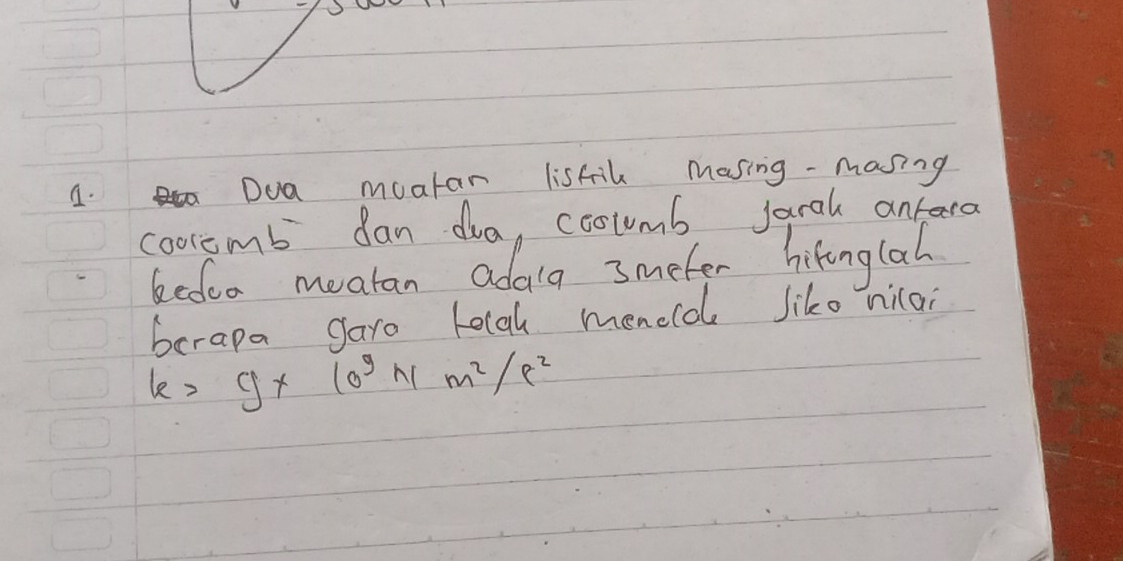 1. Dua muatan listrik masing - masing
coolomb dan dua, coolumb jarak antara
kedua muatan adala 3 meter hitunglah
berapa gara tolak menolak jiko nilai
k = 9 x 10⁹ N m²/c²